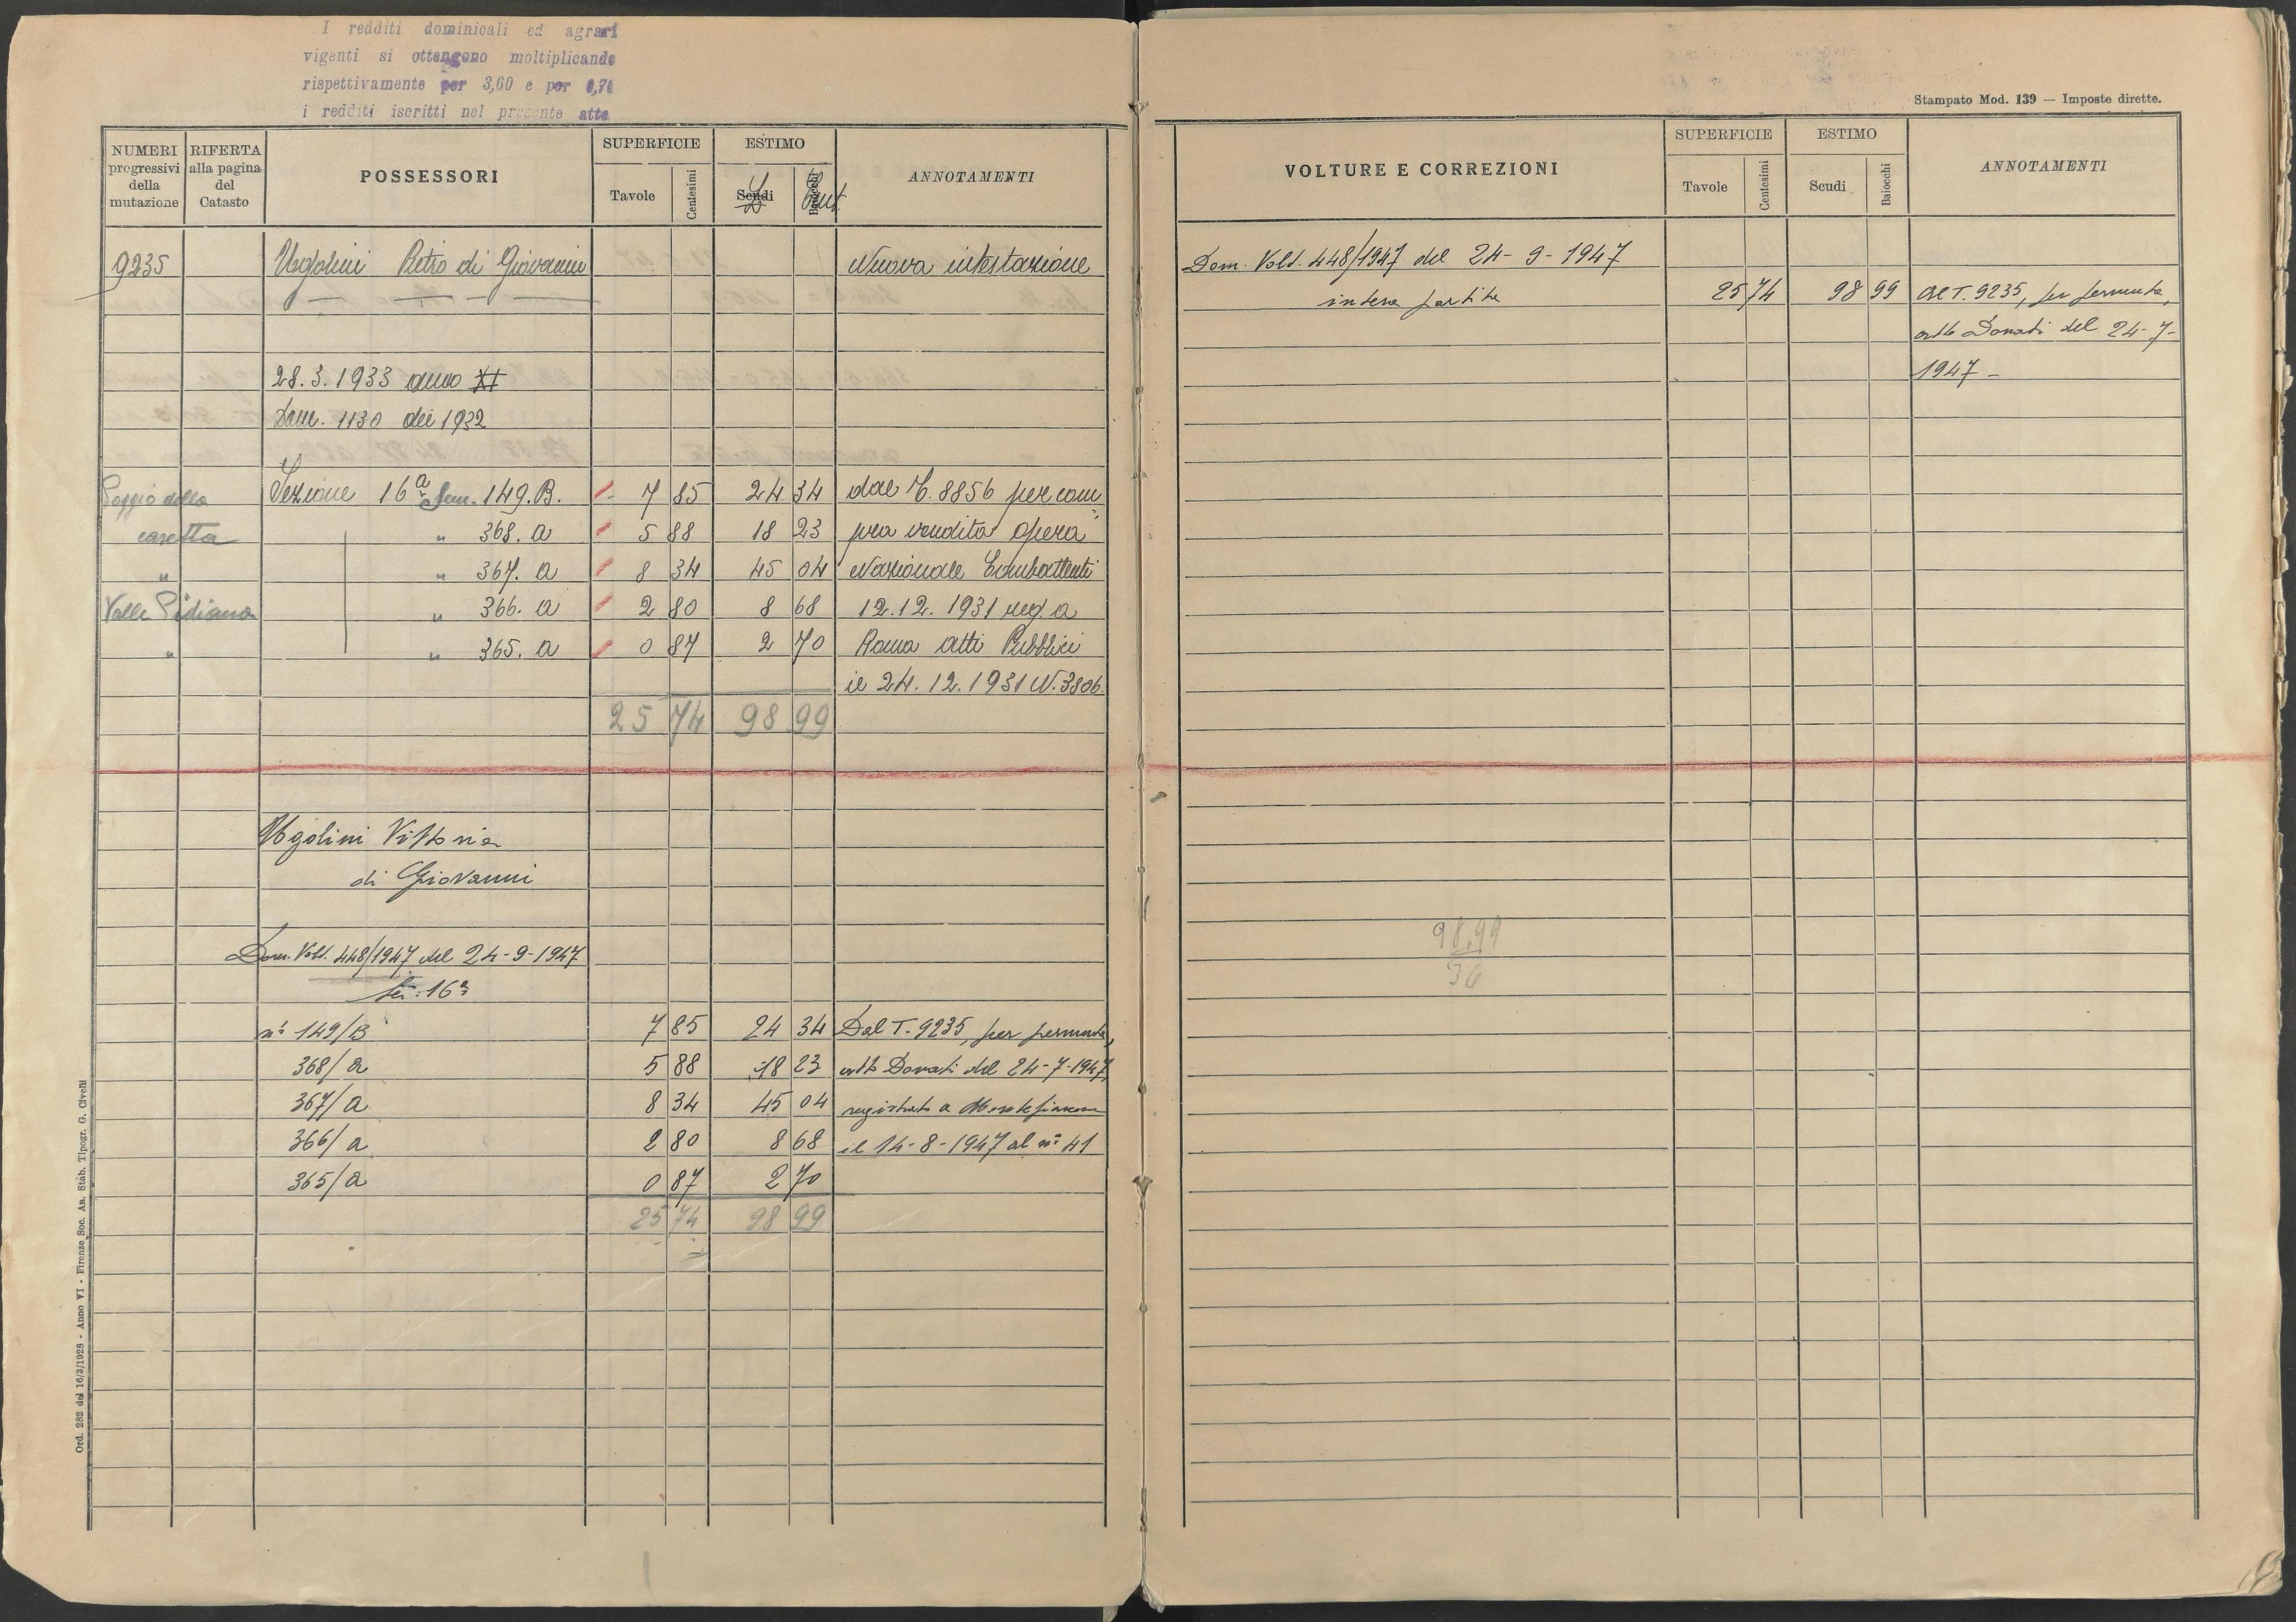 I redditi dominicali ed agrari
vigenti si ottengono moltiplicando
rispettivamente per 3,60 e per 0,70
i redditi iscritti nel presente atto
NUMERI progressivi della mutazione
RIFERTA alla pagina del Catasto
POSSESSORI
SUPERFICIE
Tavole
Centesimi
ESTIMO
Scudi
Baiocchi
L
Cent.
ANNOTAMENTI
9235 Ugolini Pietro di Giovanni Nuova intestazione
28.3.1933 anno XI
Dom. 1130 del 1932
Poggio della Sezione 16ª Num. 149.B. 7 85 24 34 dal T. 8856 per com
casetta " 368. a 5 88 18 23 pra vendita opera
" " 367. a 8 34 45 04 Nazionale Combattenti
Valle Pidiana " 366. a 2 80 8 68 12.12.1931 reg. a
" " 365. a 0 87 2 70 Roma atti Pubblici
il 24.12.1931 N. 3806.
25 74 98 99
Ugolini Vittoria
di Giovanni
Dom. Volt. 448/1947 del 24-9-1947
Sez: 16ª
nº 149/B 7 85 24 34 Dal T. 9235, per permuta,
368/a 5 88 18 23 atto Donati del 24-7-1947,
367/a 8 34 45 04 registrato a Montefiascone
366/a 2 80 8 68 il 14-8-1947 al nº 41
365/a 0 87 2 70
25 74 98 99
Ord. 282 del 16/3/1928 - Anno VI - Firenze, Soc. An. Stab. Tipogr. G. Civelli
Stampato Mod. 139 — Imposte dirette.
VOLTURE E CORREZIONI
SUPERFICIE
Tavole
Centesimi
ESTIMO
Scudi
Baiocchi
ANNOTAMENTI
Dom. Volt. 448/1947 del 24-9-1947
intera partita 25 74 98 99 Al T. 9235, per permuta,
atto Donati del 24-7-
1947 -
98,99
36